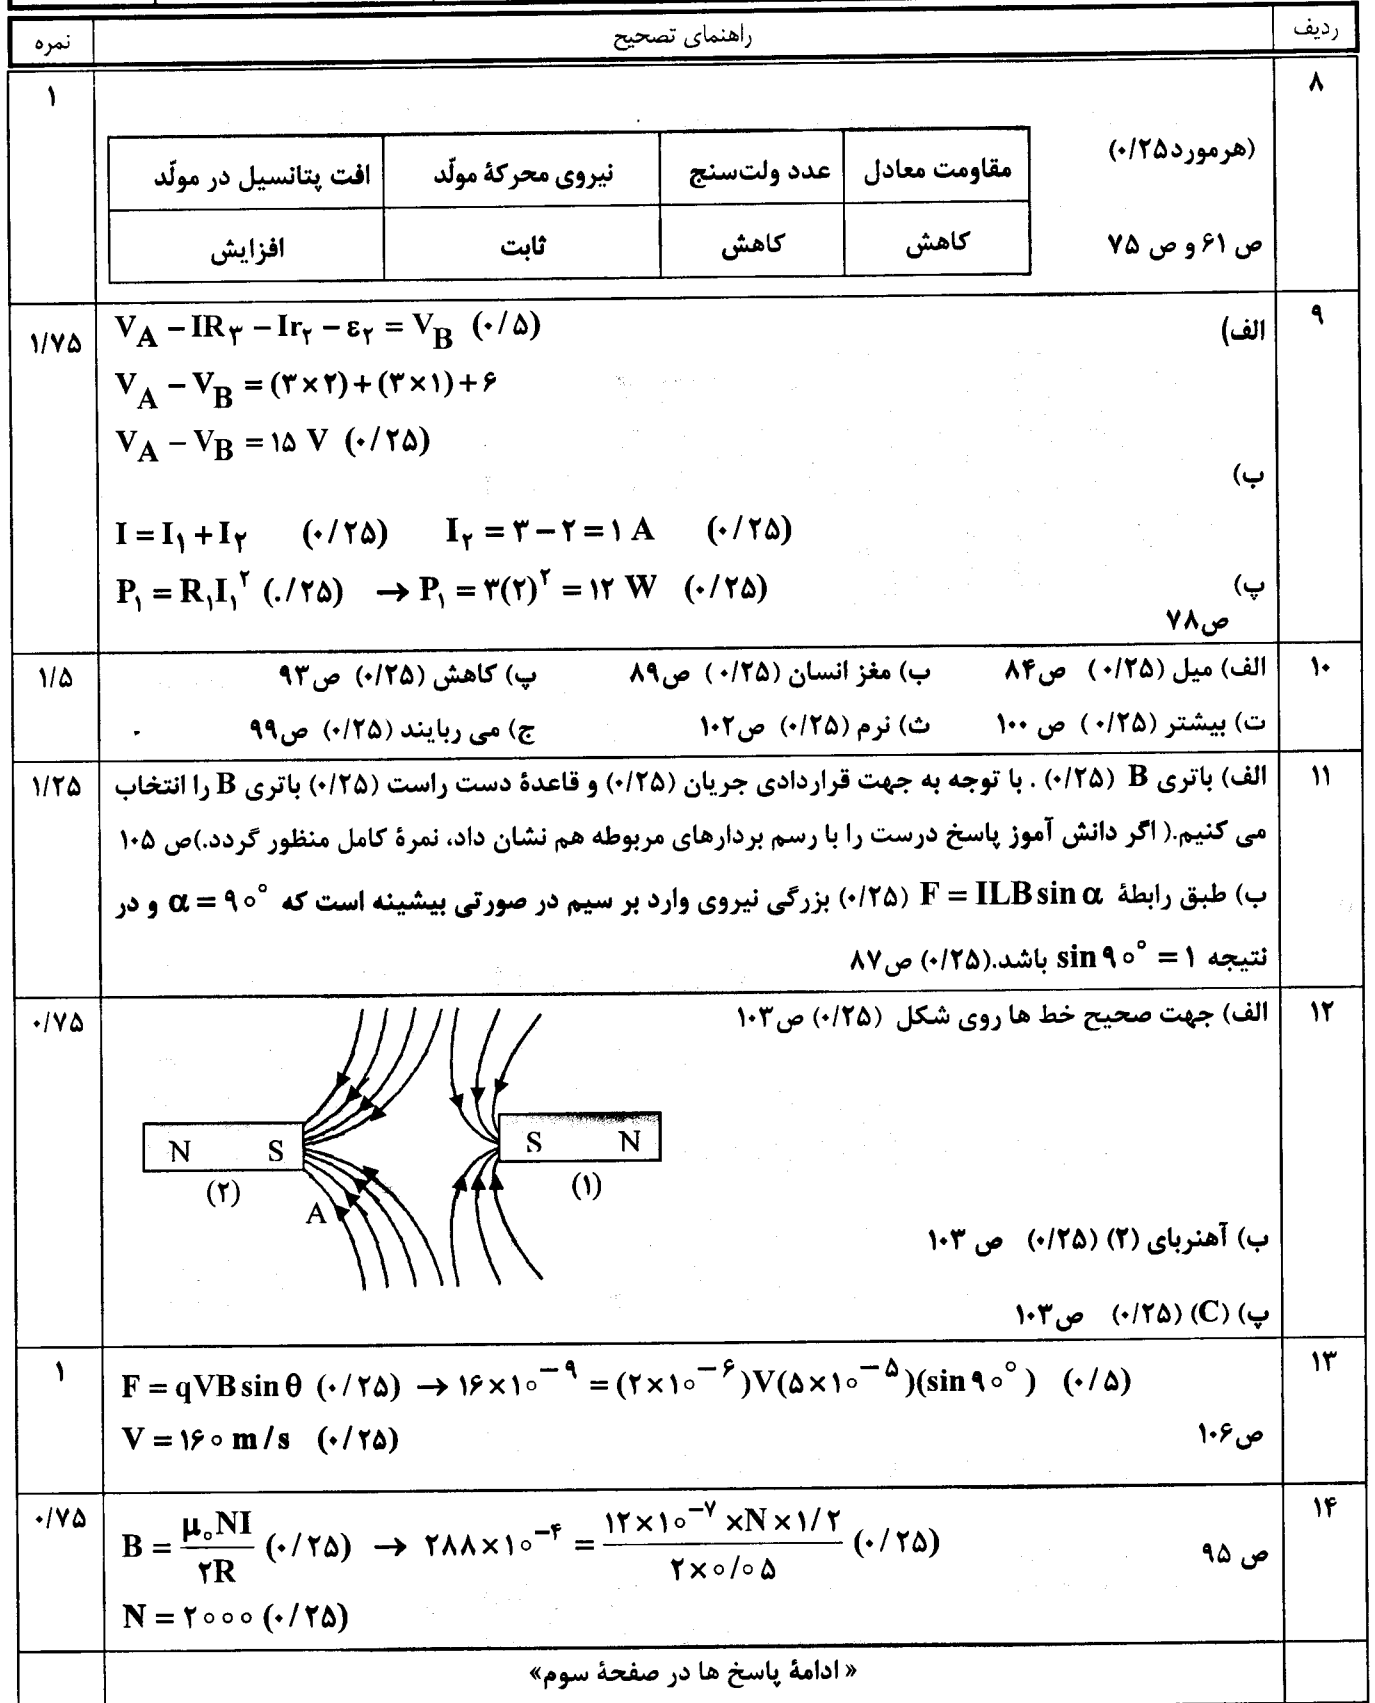 ردیف راهنمای تصحیح نمره
۸ ۱
(هرمورد ۰/۲۵)
مقاومت معادل عدد ولت‌سنج نیروی محرکهٔ مولّد افت پتانسیل در مولّد
کاهش کاهش ثابت افزایش
ص ۶۱ و ص ۷۵
۹ ۱/۷۵
الف) V_A − IR_۳ − Ir_۲ − ε_۲ = V_B (۰/۵)
V_A − V_B = (۳×۲)+(۳×۱)+۶
V_A − V_B = ۱۵ V (۰/۲۵)
ب)
I = I_۱ + I_۲ (۰/۲۵) I_۲ = ۳ − ۲ = ۱ A (۰/۲۵)
پ) P_۱ = R_۱I_۱^۲ (./۲۵) → P_۱ = ۳(۲)^۲ = ۱۲ W (۰/۲۵)
ص۷۸
۱۰ الف) میل (۰/۲۵) ص۸۴ ب) مغز انسان (۰/۲۵) ص۸۹ پ) کاهش (۰/۲۵) ص۹۳ ۱/۵
ت) بیشتر (۰/۲۵) ص ۱۰۰ ث) نرم (۰/۲۵) ص۱۰۲ ج) می ربایند (۰/۲۵) ص۹۹
۱۱ الف) باتری B (۰/۲۵) . با توجه به جهت قراردادی جریان (۰/۲۵) و قاعدهٔ دست راست (۰/۲۵) باتری B را انتخاب ۱/۲۵
می کنیم.( اگر دانش آموز پاسخ درست را با رسم بردارهای مربوطه هم نشان داد، نمرهٔ کامل منظور گردد.)ص ۱۰۵
ب) طبق رابطهٔ F = ILB sin α (۰/۲۵) بزرگی نیروی وارد بر سیم در صورتی بیشینه است که α = ۹۰° و در
نتیجه sin ۹۰° = ۱ باشد.(۰/۲۵) ص۸۷
۱۲ الف) جهت صحیح خط ها روی شکل (۰/۲۵) ص۱۰۳ ۰/۷۵
N S S N
(۲) (۱)
A
ب) آهنربای (۲) (۰/۲۵) ص ۱۰۳
پ) (C) (۰/۲۵) ص۱۰۳
۱۳ ۱
F = qVB sin θ (۰/۲۵) → ۱۶×۱۰^−۹ = (۲×۱۰^−۶)V(۵×۱۰^−۵)(sin ۹۰°) (۰/۵)
V = ۱۶۰ m/s (۰/۲۵) ص۱۰۶
۱۴ ۰/۷۵
B = μ_۰NI / ۲R (۰/۲۵) → ۲۸۸×۱۰^−۴ = ۱۲×۱۰^−۷ ×N×۱/۲ / ۲×۰/۰۵ (۰/۲۵) ص ۹۵
N = ۲۰۰۰ (۰/۲۵)
« ادامهٔ پاسخ ها در صفحهٔ سوم»